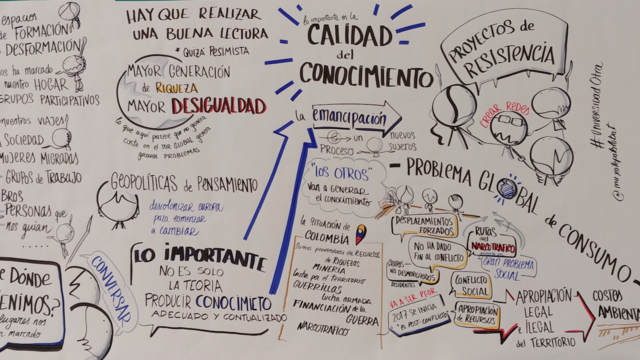 espacios
de FORMACIÓN
DESFORMACIÓN
nos ha marcado
nuestro HOGAR
GRUPOS PARTICIPATIVOS
nuestros VIAJES
SOCIEDAD
MUJERES MIGRADAS
- GRUPOS de TRABAJO
BROS
PERSONAS que
nos guían
DE DÓNDE
VENIMOS?
lugares nos
marcado
CONVERSAR
HAY QUE REALIZAR
UNA BUENA LECTURA
* QUIZÁ PESIMISTA
MAYOR GENERACIÓN
de RIQUEZA
MAYOR DESIGUALDAD
lo que aquí parece que no genera
coste en el SUR GLOBAL genera
graves PROBLEMAS
GEOPOLÍTICAS de PENSAMIENTO
descolonizar europa
para comenzar
a cambiar
LO IMPORTANTE
NO ES SOLO
LA TEORIA
PRODUCIR CONOCIMIETO
ADECUADO y CONTUALIZADO
lo importante es la
CALIDAD
del
CONOCIMIENTO
la emancipación
es un
PROCESO
nuevos
sujetos
"LOS OTROS"
Van a generar
el conocimiento
LA SITUACIÓN DE
COLOMBIA
Somos proveedores de RECURSOS
de RIQUEZAS
MINERÍA
lucha por el territorio
GUERRILLAS
lucha armada
FINANCIACIÓN de la
GUERRA
NARCOTRAFICO
PROYECTOS de
RESISTENCIA
CREAR REDES
#UniversidadOtra
- PROBLEMA GLOBAL
de CONSUMO -
DESPLAZAMIENTOS
FORZADOS
NO HA DADO
FIN AL CONFLICTO
RUTAS
del
NARCOTRAFICO
GRAN PROBLEMA
SOCIAL
CONFLICTO
SOCIAL
VA A SER PEOR
2017 SE INICIA
EL POST-CONFLICTO
APROPIACIÓN
de RECURSOS
APROPIACIÓN
LEGAL
e ILEGAL
del TERRITORIO
COSTES
AMBIENTA